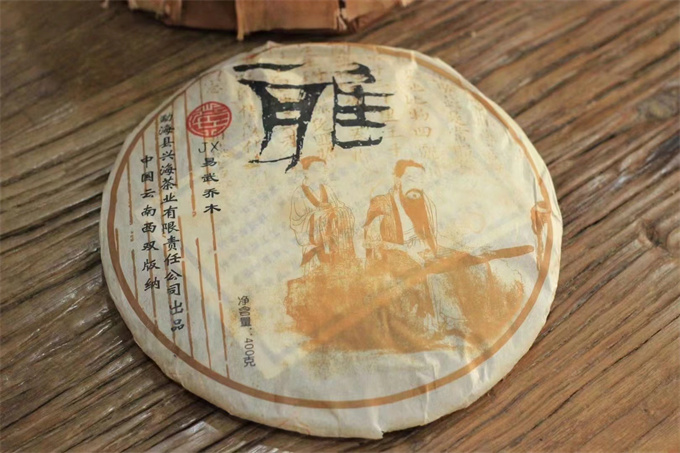 雅
JX易武乔木
勐海县兴海茶业有限责任公司出品
中国云南西双版纳
净含量：400克